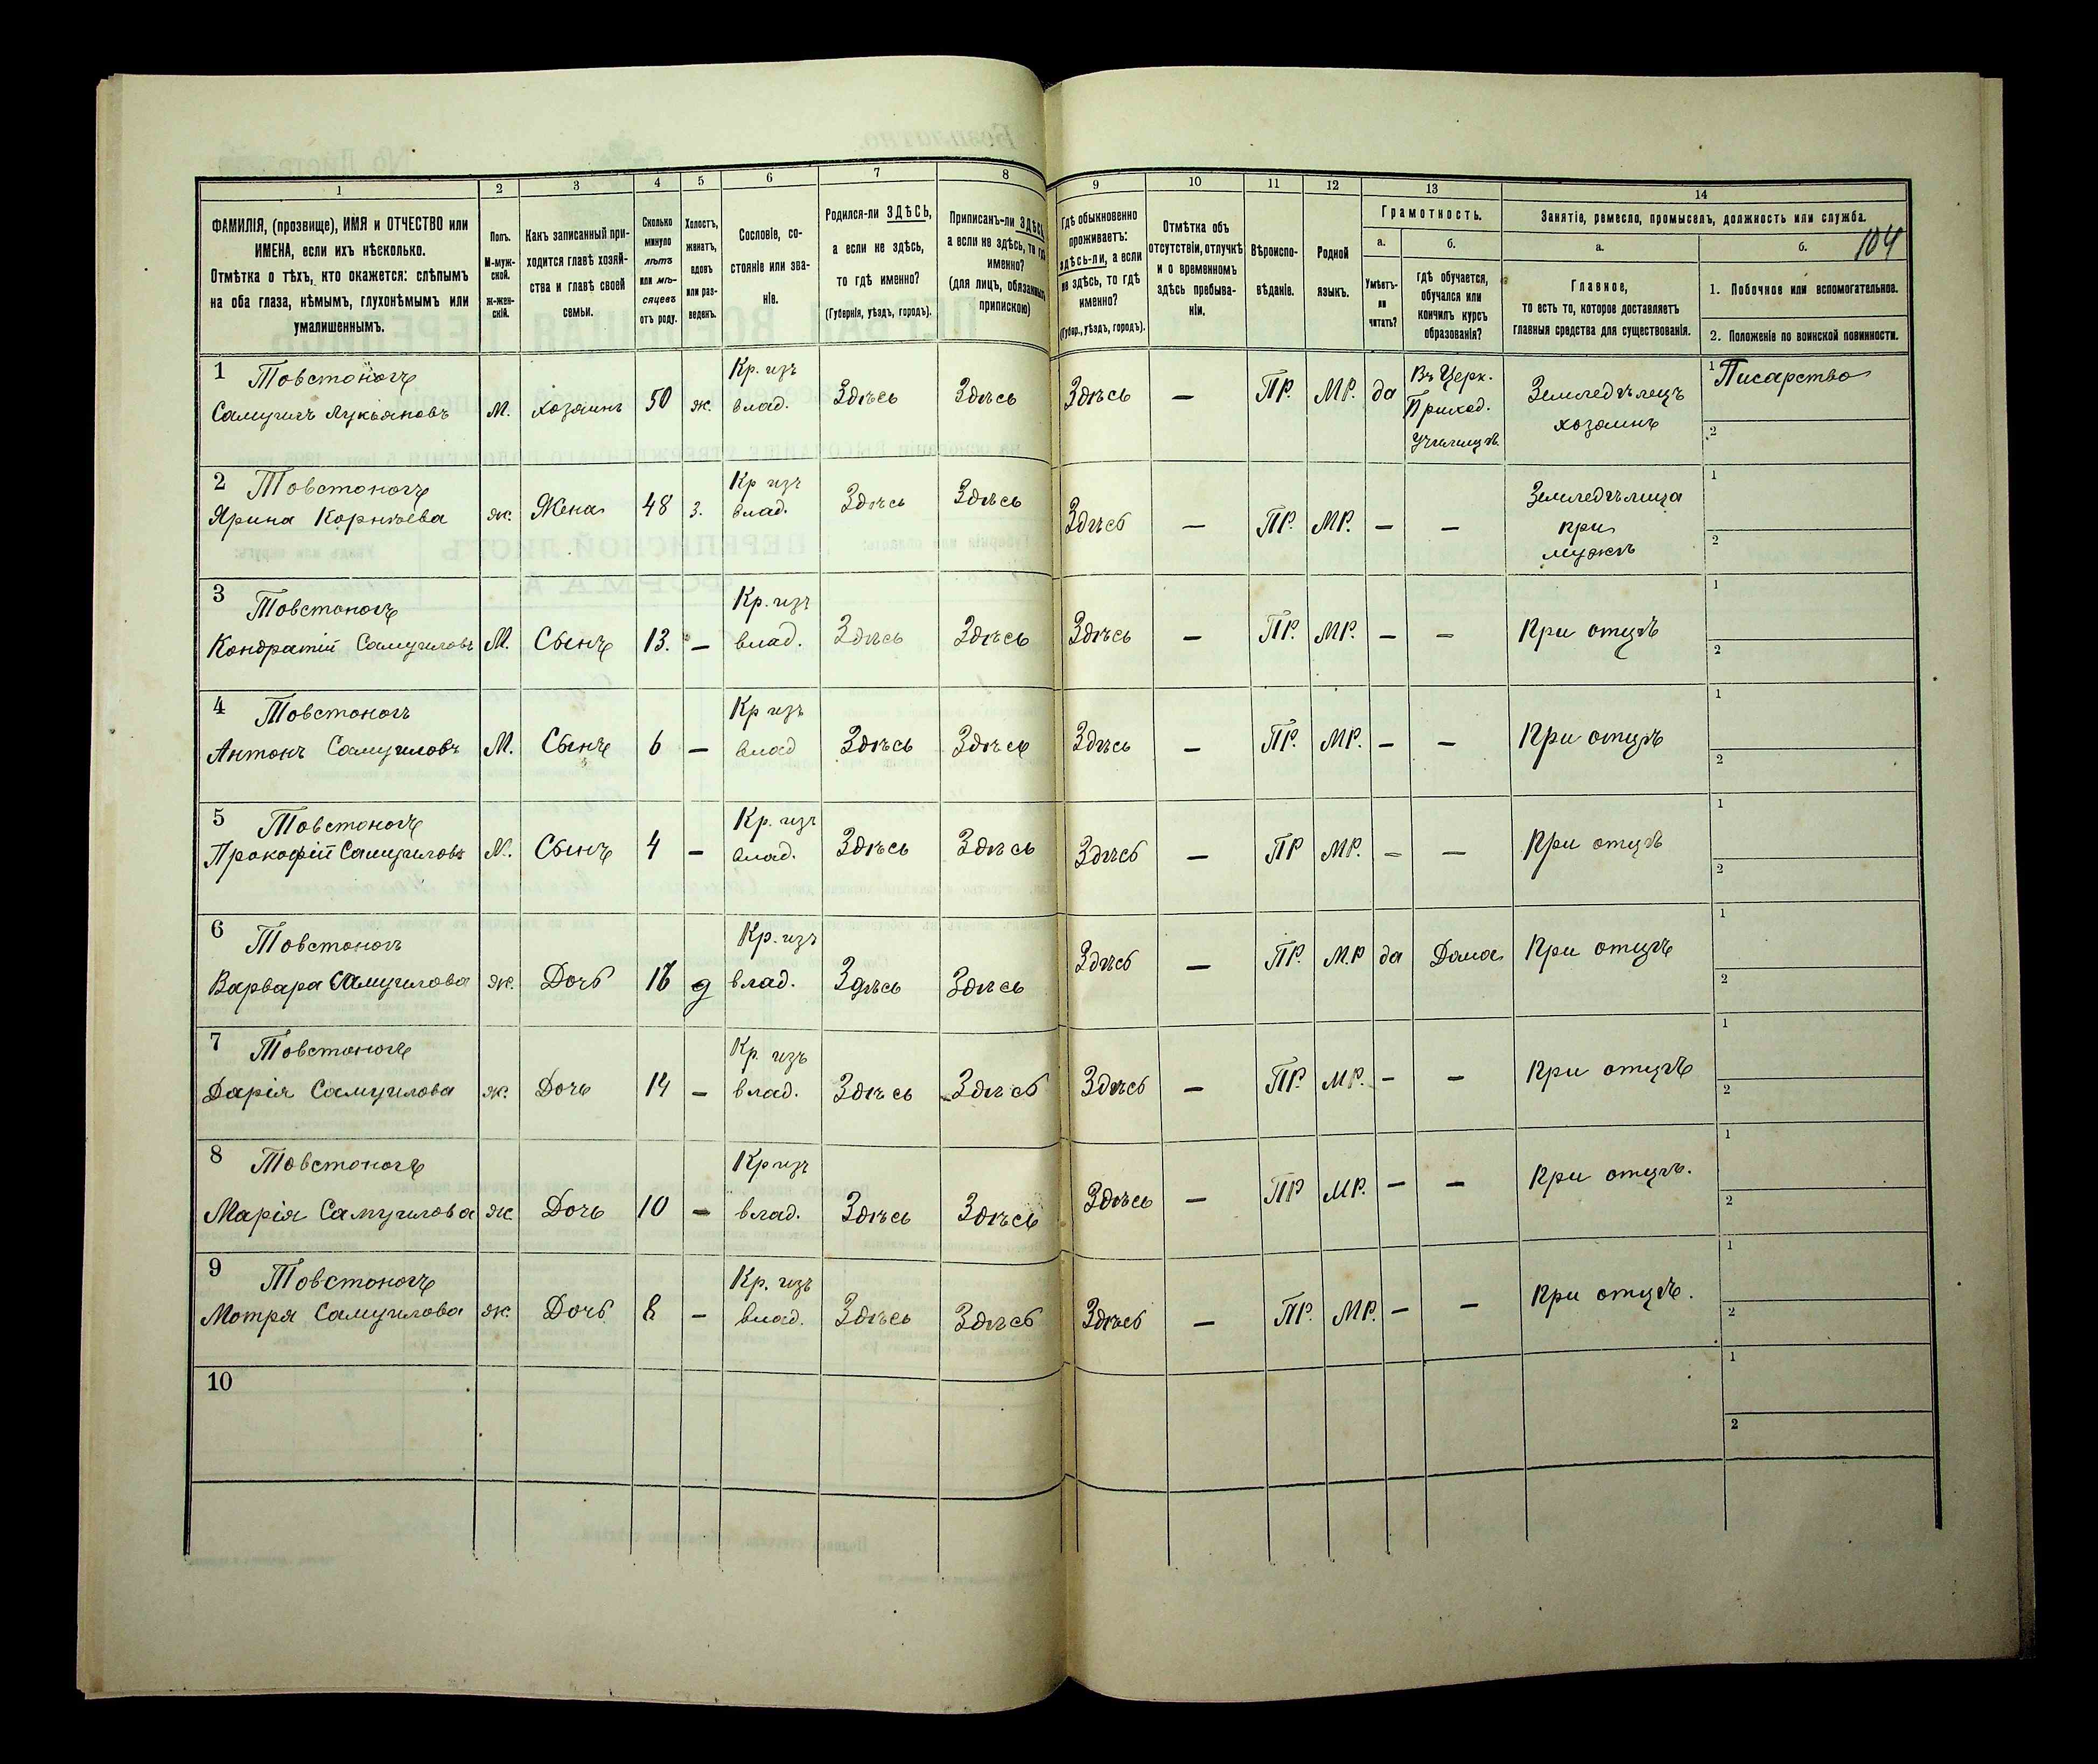 1 2 3 4 5 6 7 8 9 10 11 12 13 14
104
ФАМИЛІЯ, (прозвище), ИМЯ и ОТЧЕСТВО или
ИМЕНА, если ихъ нѣсколько.
Отмѣтка о тѣхъ, кто окажется: слѣпымъ
на оба глаза, нѣмымъ, глухонѣмымъ или
умалишеннымъ.
Полъ.
М-муж-
ской.
ж-жен-
скій.
Какъ записанный при-
ходится главѣ хозяй-
ства и главѣ своей
семьи.
Сколько
минуло
лѣтъ
или мѣ-
сяцевъ
отъ роду.
Холостъ,
женатъ,
вдовъ
или раз-
веденъ.
Сословіе, со-
стояніе или зва-
ніе.
Родился-ли ЗДѢСЬ,
а если не здѣсь,
то гдѣ именно?
(Губернія, уѣздъ, городъ).
Приписанъ-ли ЗДѢСЬ,
а если не здѣсь, то гдѣ
именно?
(для лицъ, обязанныхъ
припискою)
Гдѣ обыкновенно
проживаетъ:
здѣсь-ли, а если
не здѣсь, то гдѣ
именно?
(Губер., уѣздъ, городъ).
Отмѣтка объ
отсутствіи, отлучкѣ
и о временномъ
здѣсь пребыва-
ніи.
Вѣроиспо-
вѣданіе.
Родной
языкъ.
Грамотность.
а.
Умѣетъ-
ли
читать?
б.
Гдѣ обучается,
обучался или
кончилъ курсъ
образованія?
Занятіе, ремесло, промыселъ, должность или служба.
а.
Главное,
то есть то, которое доставляетъ
главныя средства для существованія.
б.
1. Побочное или вспомогательное.
2. Положеніе по воинской повинности.
1 Товстоногъ Кр. изъ Въ Церк. 1 Писарство
Самуилъ Лукьяновъ М. хозяинъ 50 ж. влад. Здѣсь Здѣсь Здѣсь — ПР. МР. да Приход. Земледѣлецъ
Училищѣ хозяинъ 2
2 Товстоногъ Кр изъ Земледѣлица 1
Ярина Корнѣева ж. Жена 48 з. влад. Здѣсь Здѣсь Здѣсь — ПР. МР. — — при
мужѣ 2
3 Товстоногъ Кр. изъ 1
Кондратій Самуиловъ М. Сынъ 13. — влад. Здѣсь Здѣсь Здѣсь — ПР. МР. — — При отцѣ 2
4 Товстоногъ Кр изъ 1
Антонъ Самуиловъ М. Сынъ 6 — влад Здѣсь Здѣсь Здѣсь — ПР. МР. — — При отцѣ 2
5 Товстоногъ Кр. изъ 1
Прокофій Самуиловъ М. Сынъ 4 — влад. Здѣсь Здѣсь Здѣсь — ПР МР. — — При отцѣ 2
6 Товстоногъ Кр. изъ 1
Варвара Самуилова ж. Дочь д влад. Здѣсь Здѣсь Здѣсь — ПР. М.Р да Дома При отцѣ 2
7 Товстоногъ Кр. изъ 1
Дарія Самуилова ж. Дочь 14 — влад. Здѣсь Здѣсь Здѣсь — ПР. МР. — — При отцѣ 2
8 Товстоногъ Кр изъ 1
Марія Самуилова ж Дочь 10 — влад. Здѣсь Здѣсь Здѣсь — ПР МР. — — При отцѣ. 2
9 Товстоногъ Кр. изъ 1
Мотря Самуилова ж. Дочь 8 — влад. Здѣсь Здѣсь Здѣсь — ПР. МР. — — При отцѣ. 2
10 1
2